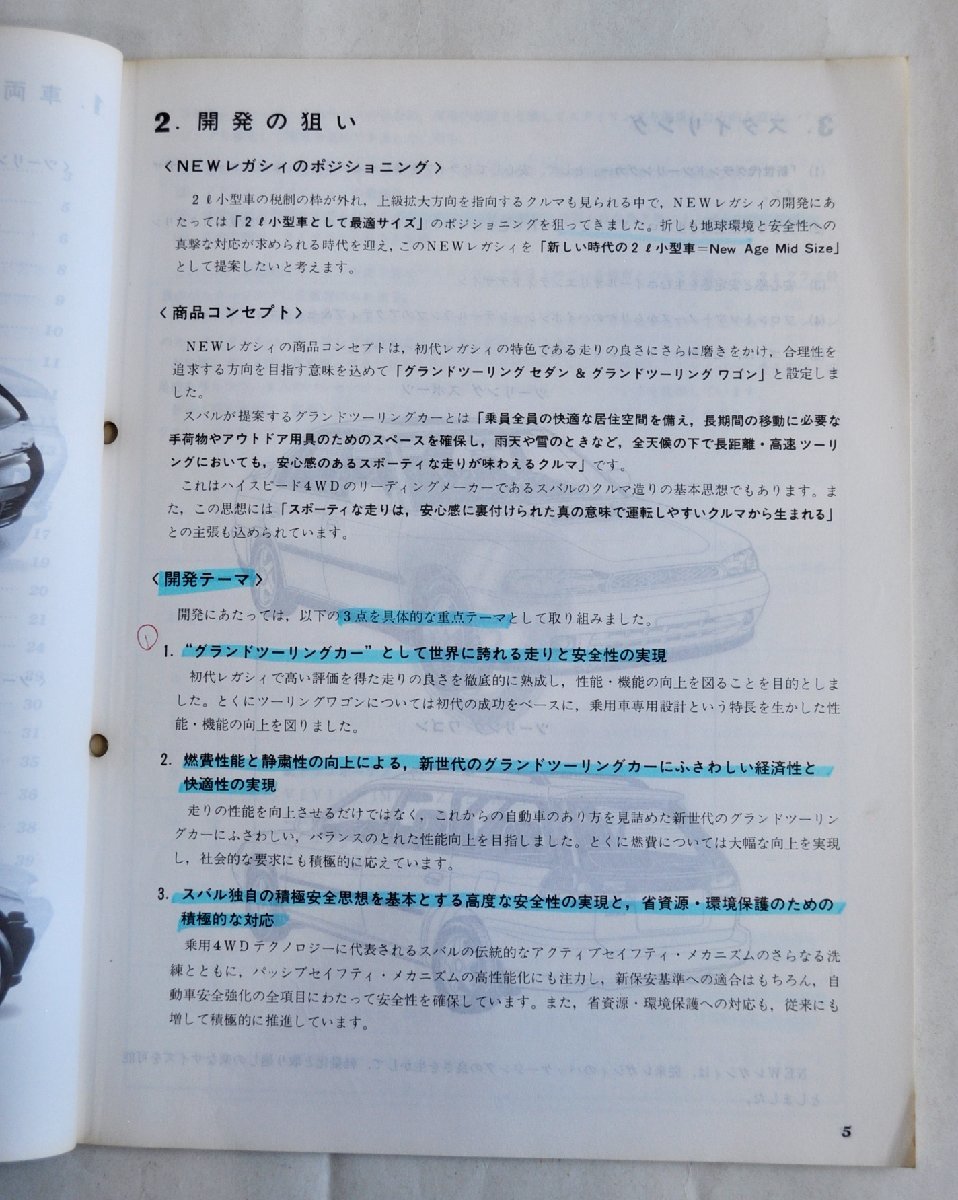 1. 車両
2. 開発の狙い
〈NEWレガシィのポジショニング〉
2ℓ小型車の税制の枠が外れ，上級拡大方向を指向するクルマも見られる中で，NEWレガシィの開発にあ
たっては「2ℓ小型車として最適サイズ」のポジショニングを狙ってきました。折しも地球環境と安全性への
真摯な対応が求められる時代を迎え，このNEWレガシィを「新しい時代の2ℓ小型車＝New Age Mid Size」
として提案したいと考えます。
〈商品コンセプト〉
NEWレガシィの商品コンセプトは，初代レガシィの特色である走りの良さにさらに磨きをかけ，合理性を
追求する方向を目指す意味を込めて「グランドツーリング セダン & グランドツーリング ワゴン」と設定しま
した。
スバルが提案するグランドツーリングカーとは「乗員全員の快適な居住空間を備え，長期間の移動に必要な
手荷物やアウトドア用具のためのスペースを確保し，雨天や雪のときなど，全天候の下で長距離・高速ツーリ
ングにおいても，安心感のあるスポーティな走りが味わえるクルマ」です。
これはハイスピード4WDのリーディングメーカーであるスバルのクルマ造りの基本思想でもあります。ま
た，この思想には「スポーティな走りは，安心感に裏付けられた真の意味で運転しやすいクルマから生まれる」
との主張も込められています。
〈開発テーマ〉
開発にあたっては，以下の3点を具体的な重点テーマとして取り組みました。
1. “グランドツーリングカー”として世界に誇れる走りと安全性の実現
初代レガシィで高い評価を得た走りの良さを徹底的に熟成し，性能・機能の向上を図ることを目的としま
した。とくにツーリングワゴンについては初代の成功をベースに，乗用車専用設計という特長を生かした性
能・機能の向上を図りました。
2. 燃費性能と静粛性の向上による，新世代のグランドツーリングカーにふさわしい経済性と
快適性の実現
走りの性能を向上させるだけではなく，これからの自動車のあり方を見詰めた新世代のグランドツーリン
グカーにふさわしい，バランスのとれた性能向上を目指しました。とくに燃費については大幅な向上を実現
し，社会的な要求にも積極的に応えています。
3. スバル独自の積極安全思想を基本とする高度な安全性の実現と，省資源・環境保護のための
積極的な対応
乗用4WDテクノロジーに代表されるスバルの伝統的なアクティブセイフティ・メカニズムのさらなる洗
練とともに，パッシブセイフティ・メカニズムの高性能化にも注力し，新保安基準への適合はもちろん，自
動車安全強化の全項目にわたって安全性を確保しています。また，省資源・環境保護への対応も，従来にも
増して積極的に推進しています。
5